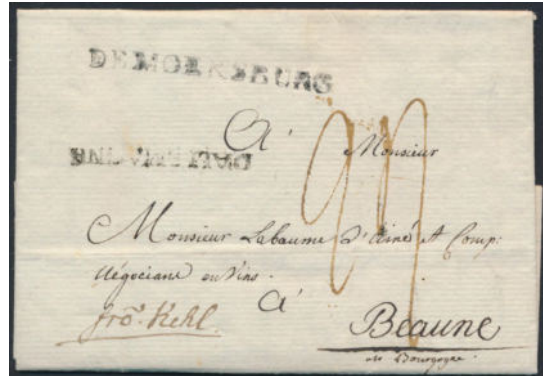 DE MOERSBURG
A Monsieur
D'ALLEMAGNE
Monsieur Labaume L'ainé et Comp:
Négociant en Vins.
fro. Kehl.
A
Beaune
en Bourgogne